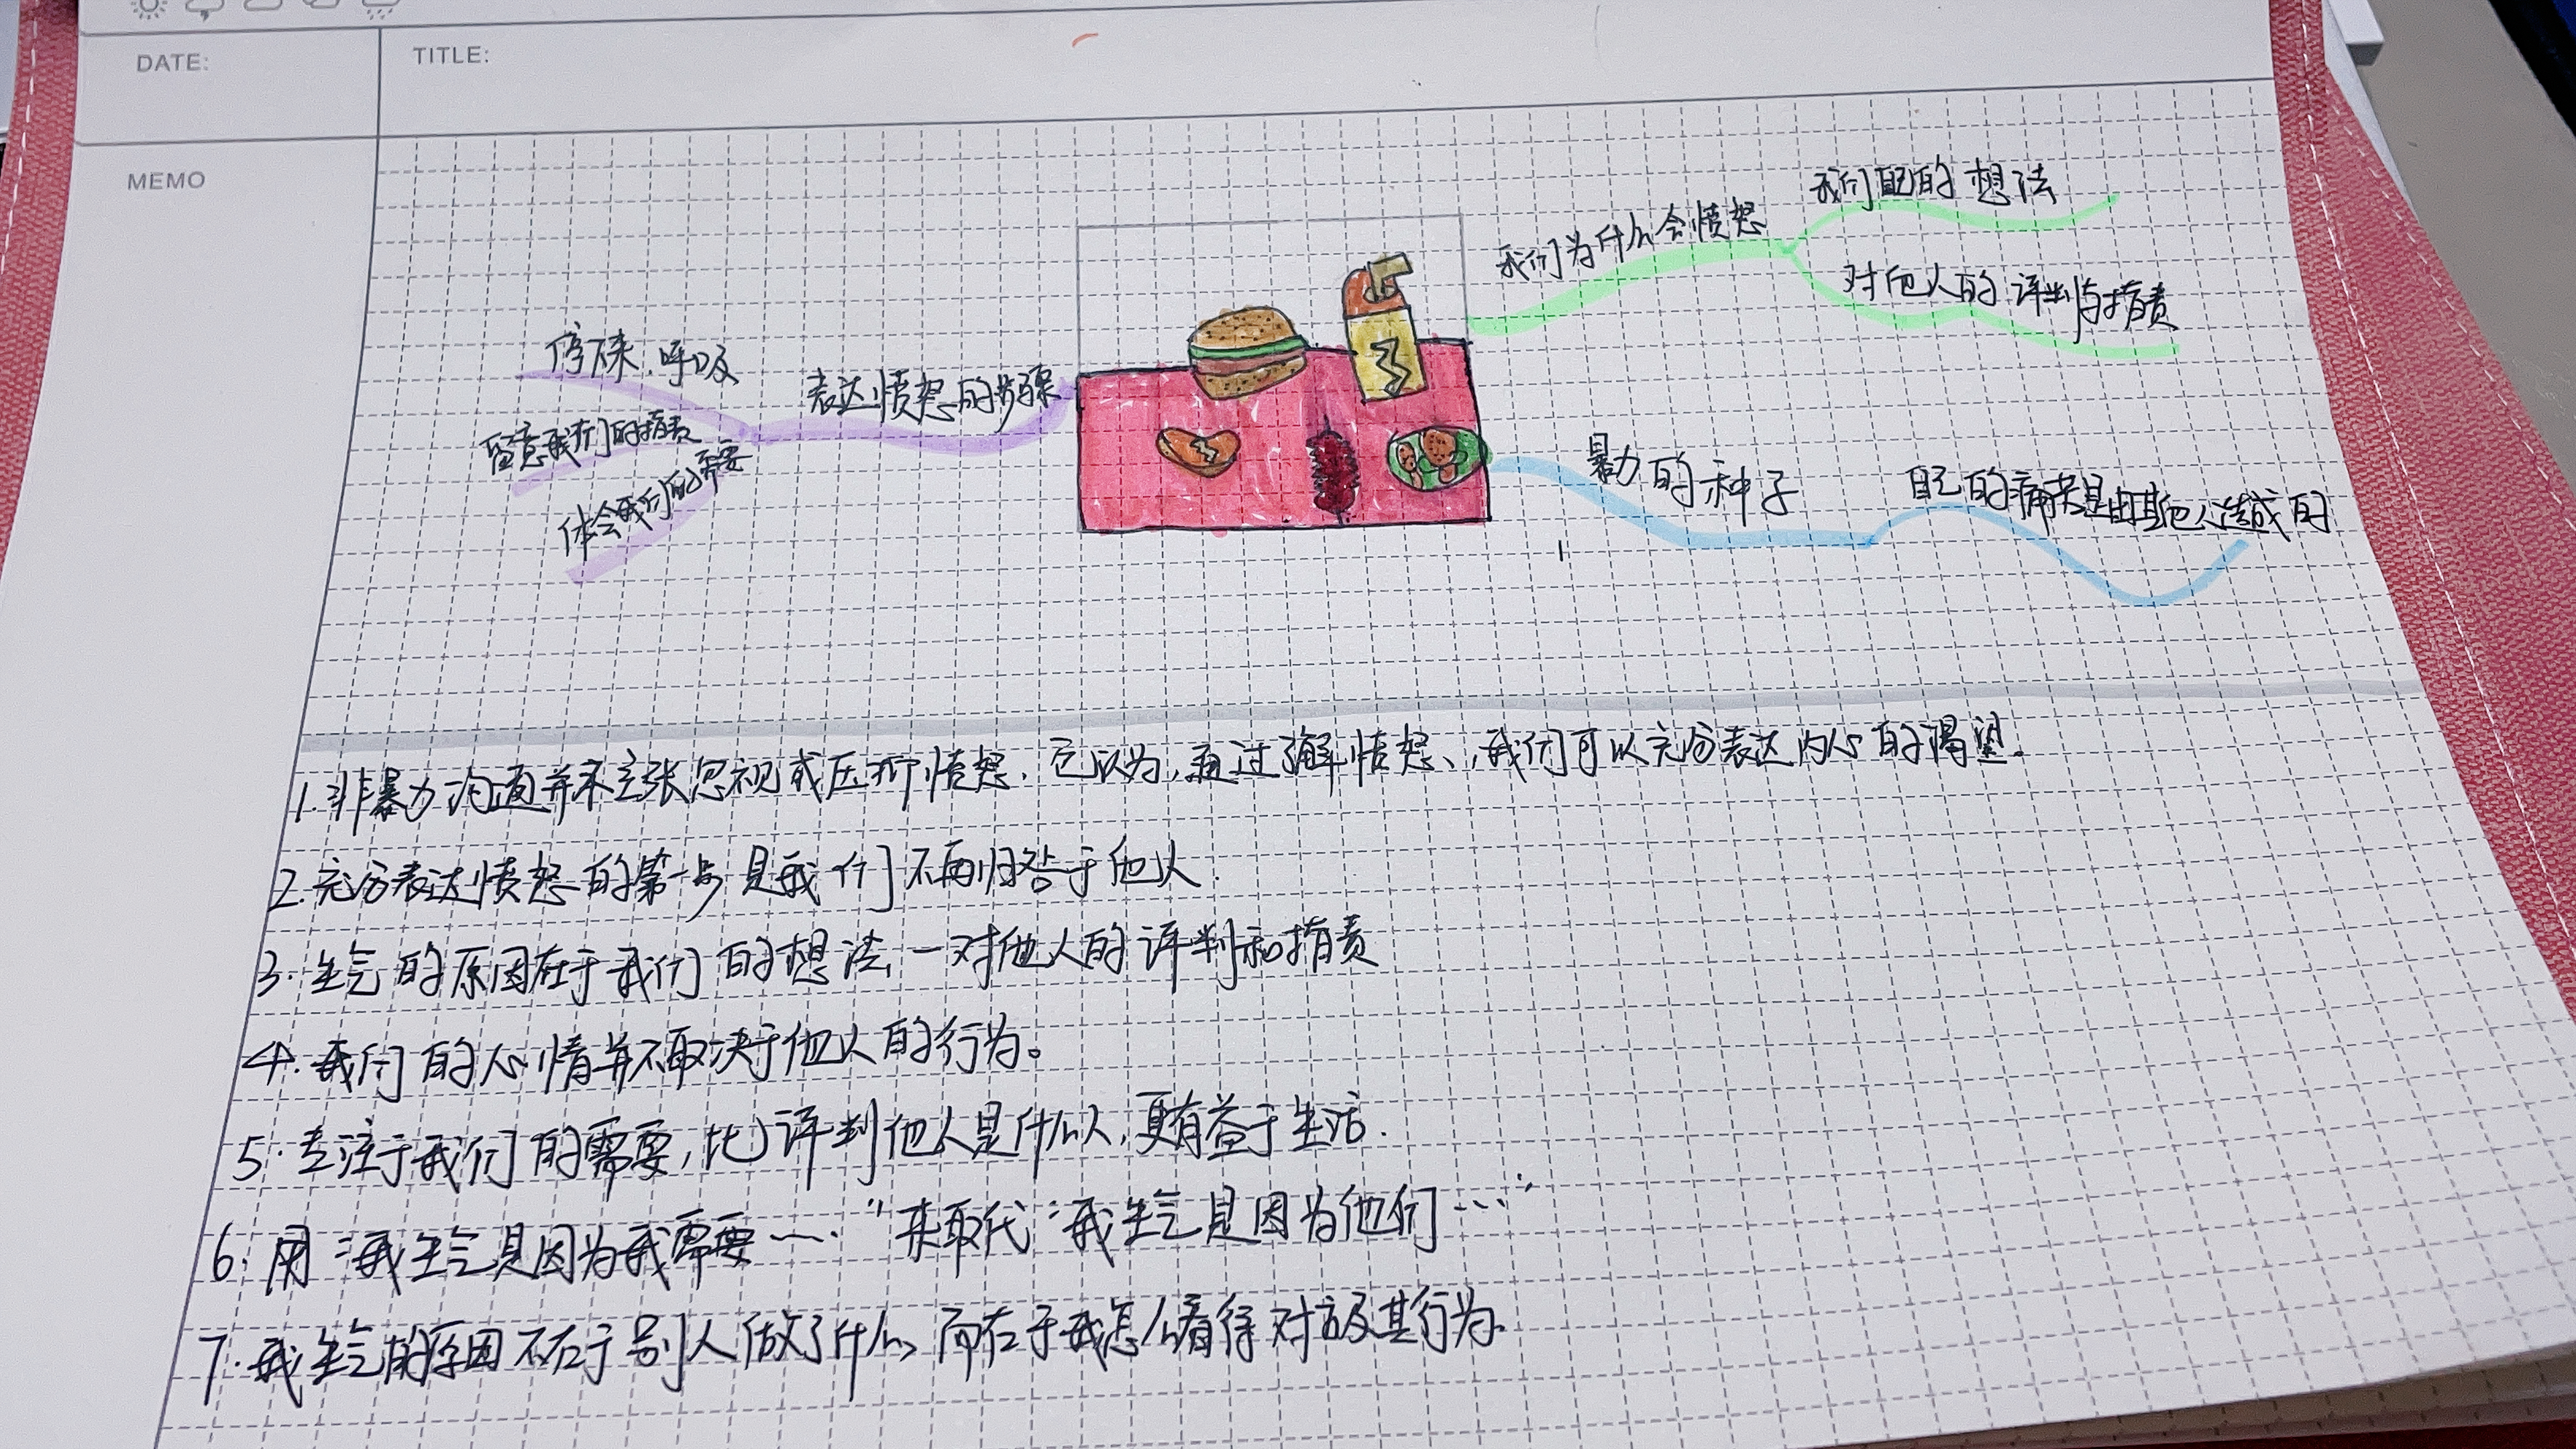 DATE:
TITLE:
MEMO
我们为什么会愤怒
我们自己的想法
对他人的评判与指责
暴力的种子
自己的痛苦是由其他人造成的
表达愤怒的步骤
停下来.呼吸
留意我们的指责
体会我们的需要
1.非暴力沟通并不主张忽视或压抑愤怒.它认为,通过了解愤怒、,我们可以充分表达内心的渴望。
2.充分表达愤怒的第一步是我们不再归咎于他人.
3.生气的原因在于我们的想法,一对他人的评判和指责
4.我们的心情并不取决于他人的行为。
5.专注于我们的需要,比评判他人是什么人,更有益于生活.
6.用“我生气是因为我需要…."来取代“我生气是因为他们…"
7.我生气的原因不在于别人做了什么,而在于我怎么看待对方及其行为.